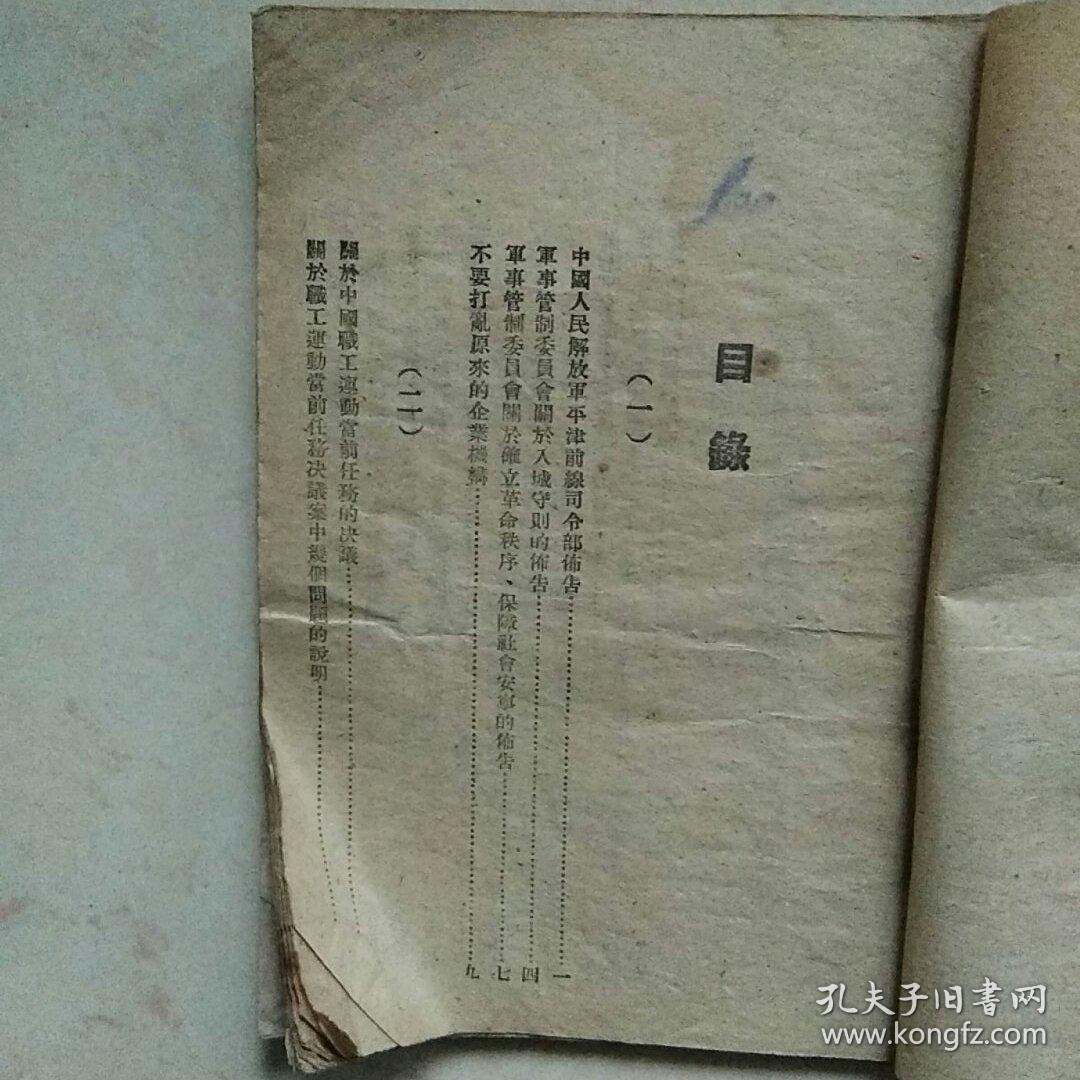 目錄
(一)
中國人民解放軍平津前線司令部佈告……一
軍事管制委員會關於入城守則的佈告……四
軍事管制委員會關於確立革命秩序、保障社會安寧的佈告……七
不要打亂原來的企業機構……九
(二)
關於中國職工運動當前任務的决議……
關於職工運動當前任務决議案中幾個問題的說明……
孔夫子旧書网
www.kongfz.com